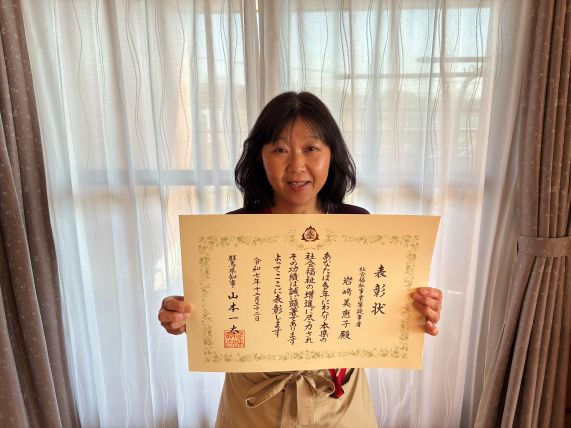 表彰状
社会福祉事業等従事者
岩崎美恵子殿
あなたは多年にわたり本県の
社会福祉の増進に尽力され
その功績は誠に顕著であります
よってここに表彰します
令和七年
群馬県知事 山本一太